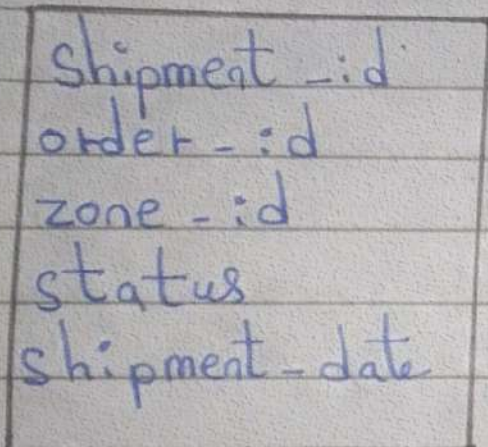 shipment_id
order_id
zone_id
status
shipment_date